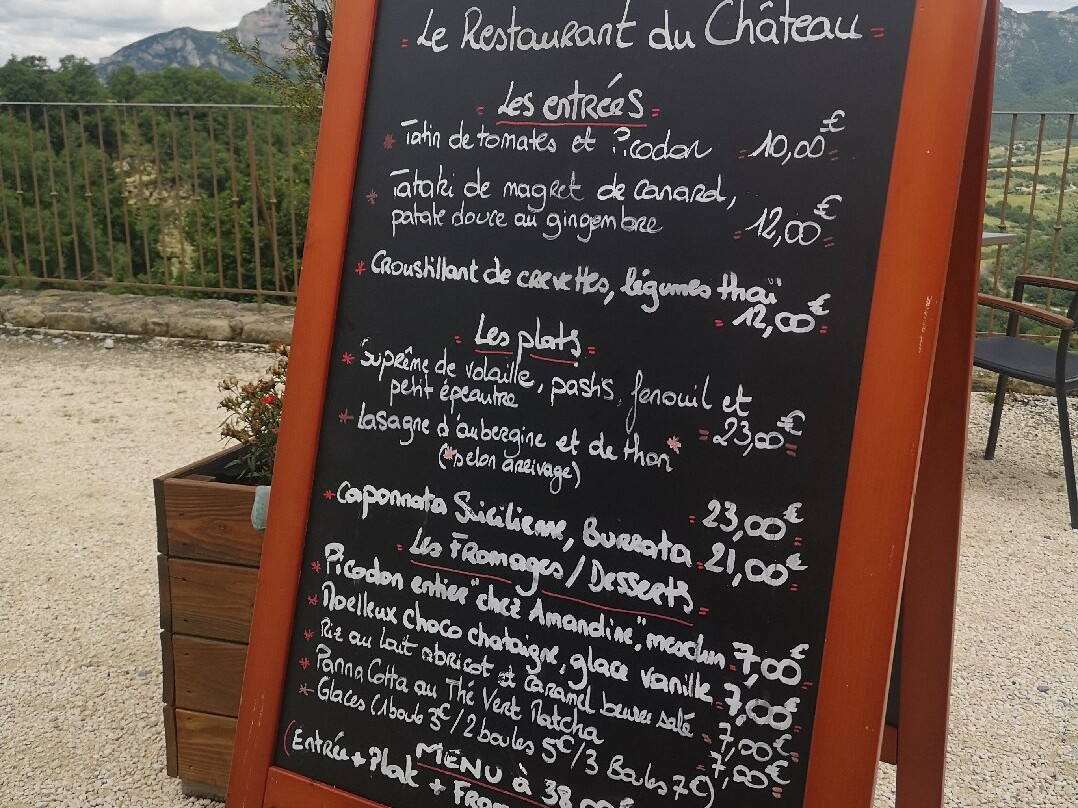 = Le Restaurant du Château =
= Les entrées =
* Tatin de tomates et Picodon = 10,00€ =
* Tataki de magret de canard,
patate douce au gingembre = 12,00€ =
* Croustillant de crevettes, légumes thaï
= 12,00€ =
= Les plats =
* Suprême de volaille, pastis, fenouil et
petit épeautre = 23,00€ =
* Lasagne d'aubergine et de thon*
(*selon arrivage)
= 23,00€
* Caponnata Sicilienne, Burrata = 21,00€ =
= Les Fromages / Desserts =
* Picodon entier "chez Amandine", mesclun 7,00€
* Moelleux choco chataigne, glace vanille 7,00€
* Riz au lait abricot et caramel beurre salé = 7,00€
* Panna Cotta au Thé Vert Matcha = 7,00€
* Glaces (1 boule 3€ / 2 boules 5€ / 3 Boules 7€)
MENU à 38,00€
(Entrée + Plat + From